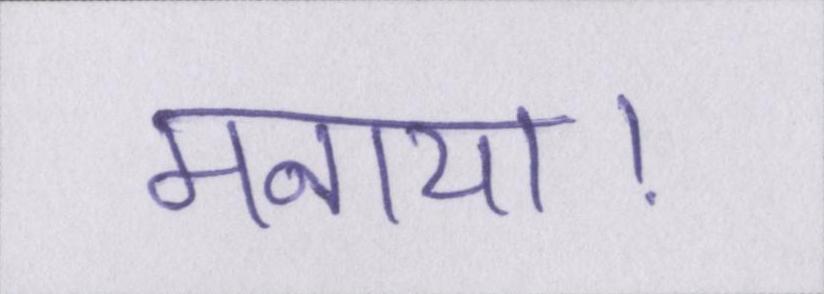 मनाया!